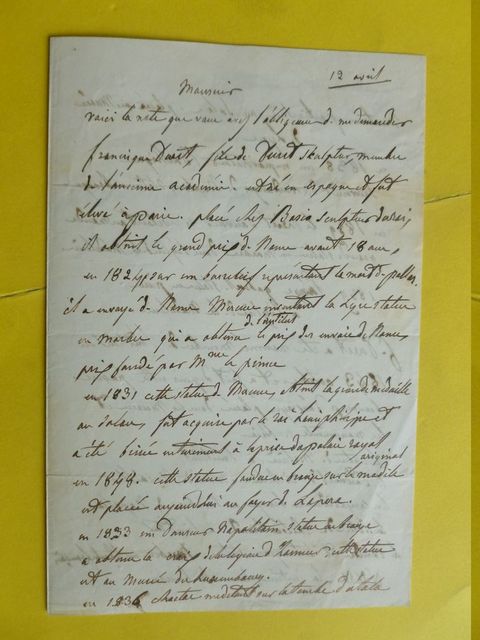 12 avril
Monsieur
voici la note que vous avez l'obligeance de me demander
francisque Duret, fils de Duret sculpteur, membre
de l'ancienne académie. est né en espagne et fut
élevé à paris. placé chez Bosio sculpteur du roi,
il obtint le grand prix de Rome avant 18 ans,
en 182 sur un bas relief représentant la mort de
il a envoyé de Rome Mercure inventant la Lyre statue
en marbre qui a obtenu le prix des envois de Rome
de l'institut
prix fondé par Mme le prince
en 1831 cette statue de Mercure obtint la grande médaille
au salon, fut acquise par le roi Louis philippe et
a été brisée entièrement à la prise du palais royal
en 1848. cette statue fondue en bronze sur le modèle original
est placée aujourd'hui au foyer de l'opera.
en 1833 un Danseur Napolitain statue en bronze
a obtenu la croix de la légion d'honneur, cette statue
est au musée du Luxembourg.
en 1836 Chactas méditant sur la tombe d'atala